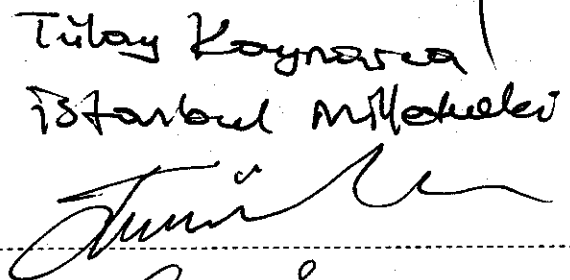 Tülay Kaynarca
İstanbul Milletvekili